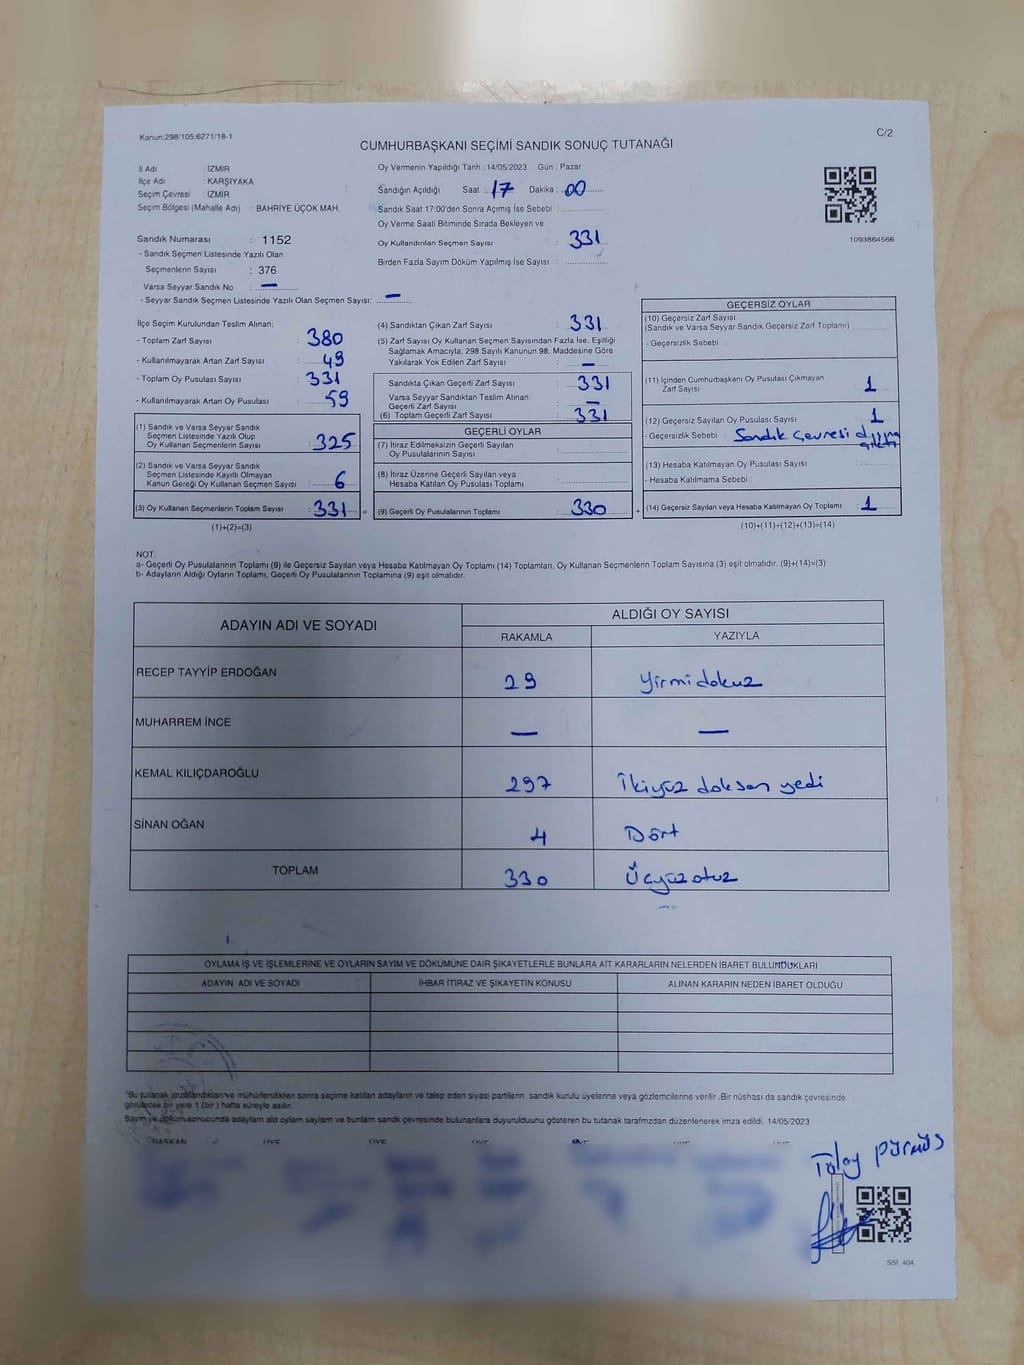 Kanun:298/105;6271/18-1
C/2
CUMHURBAŞKANI SEÇİMİ SANDIK SONUÇ TUTANAĞI
İl Adı : İZMİR
İlçe Adı : KARŞIYAKA
Seçim Çevresi : İZMİR
Seçim Bölgesi (Mahalle Adı) : BAHRİYE ÜÇOK MAH.
Oy Vermenin Yapıldığı Tarih : 14/05/2023 Gün : Pazar
Sandığın Açıldığı Saat : 17 Dakika : 00
Sandık Saat 17:00'den Sonra Açımış İse Sebebi :
Oy Verme Saati Bitiminde Sırada Bekleyen ve
Oy Kullandırılan Seçmen Sayısı : 331
Birden Fazla Sayım Döküm Yapılmış İse Sayısı :
1093864566
Sandık Numarası : 1152
- Sandık Seçmen Listesinde Yazılı Olan
Seçmenlerin Sayısı : 376
Varsa Seyyar Sandık No : —
- Seyyar Sandık Seçmen Listesinde Yazılı Olan Seçmen Sayısı: —
İlçe Seçim Kurulundan Teslim Alınan;
- Toplam Zarf Sayısı : 380
- Kullanılmayarak Artan Zarf Sayısı : 49
- Toplam Oy Pusulası Sayısı : 331
- Kullanılmayarak Artan Oy Pusulası : 59
(1) Sandık ve Varsa Seyyar Sandık
Seçmen Listesinde Yazılı Olup
Oy Kullanan Seçmenlerin Sayısı : 325
(2) Sandık ve Varsa Seyyar Sandık
Seçmen Listesinde Kayıtlı Olmayan
Kanun Gereği Oy Kullanan Seçmen Sayısı : 6
(3) Oy Kullanan Seçmenlerin Toplam Sayısı : 331 =
(1)+(2)=(3)
(4) Sandıktan Çıkan Zarf Sayısı : 331
(5) Zarf Sayısı Oy Kullanan Seçmen Sayısından Fazla İse, Eşitliği
Sağlamak Amacıyla; 298 Sayılı Kanunun 98. Maddesine Göre
Yakılarak Yok Edilen Zarf Sayısı : —
Sandıkta Çıkan Geçerli Zarf Sayısı : 331
Varsa Seyyar Sandıktan Teslim Alınan
Geçerli Zarf Sayısı : —
(6) Toplam Geçerli Zarf Sayısı : 331
GEÇERLİ OYLAR
(7) İtiraz Edilmeksizin Geçerli Sayılan
Oy Pusulalarının Sayısı :
(8) İtiraz Üzerine Geçerli Sayılan veya
Hesaba Katılan Oy Pusulası Toplamı :
(9) Geçerli Oy Pusulalarının Toplamı : 330 +
GEÇERSİZ OYLAR
(10) Geçersiz Zarf Sayısı
(Sandık ve Varsa Seyyar Sandık Geçersiz Zarf Toplamı)
- Geçersizlik Sebebi :
(11) İçinden Cumhurbaşkanı Oy Pusulası Çıkmayan
Zarf Sayısı : 1
(12) Geçersiz Sayılan Oy Pusulası Sayısı : 1
- Geçersizlik Sebebi : Sandık çevresi dışına
(13) Hesaba Katılmayan Oy Pusulası Sayısı :
- Hesaba Katılmama Sebebi :
(14) Geçersiz Sayılan veya Hesaba Katılmayan Oy Toplamı : 1
(10)+(11)+(12)+(13)=(14)
NOT:
a- Geçerli Oy Pusulalarının Toplamı (9) ile Geçersiz Sayılan veya Hesaba Katılmayan Oy Toplamı (14) Toplamları, Oy Kullanan Seçmenlerin Toplam Sayısına (3) eşit olmalıdır. (9)+(14)=(3)
b- Adayların Aldığı Oyların Toplamı, Geçerli Oy Pusulalarının Toplamına (9) eşit olmalıdır.
ADAYIN ADI VE SOYADI ALDIĞI OY SAYISI
RAKAMLA YAZIYLA
RECEP TAYYİP ERDOĞAN 29 Yirmidokuz
MUHARREM İNCE — —
KEMAL KILIÇDAROĞLU 297 İkiyüz doksan yedi
SİNAN OĞAN 4 Dört
TOPLAM 330 Üçyüz otuz
OYLAMA İŞ VE İŞLEMLERİNE VE OYLARIN SAYIM VE DÖKÜMÜNE DAİR ŞİKAYETLERLE BUNLARA AİT KARARLARIN NELERDEN İBARET BULUNDUKLARI
ADAYIN ADI VE SOYADI İHBAR İTİRAZ VE ŞİKAYETİN KONUSU ALINAN KARARIN NEDEN İBARET OLDUĞU
*Bu tutanak imzalandıktan ve mühürlendikten sonra seçime katılan adayların ve talep eden siyasi partilerin sandık kurulu üyelerine veya gözlemcilerine verilir .Bir nüshası da sandık çevresinde
görülecek bir yere 1 (bir ) hafta süreyle asılır.
Sayım ve döküm sonucunda adayların aldı oyların sayların ve bunların sandk çevresinde bulunanlara duyurulduunu gösteren bu tutanak tarafmzdan düzenlenerek imza edildi. 14/05/2023
BAŞKAN ÜYE ÜYE ÜYE ÜYE ÜYE ÜYE
Tülay
SSI_404